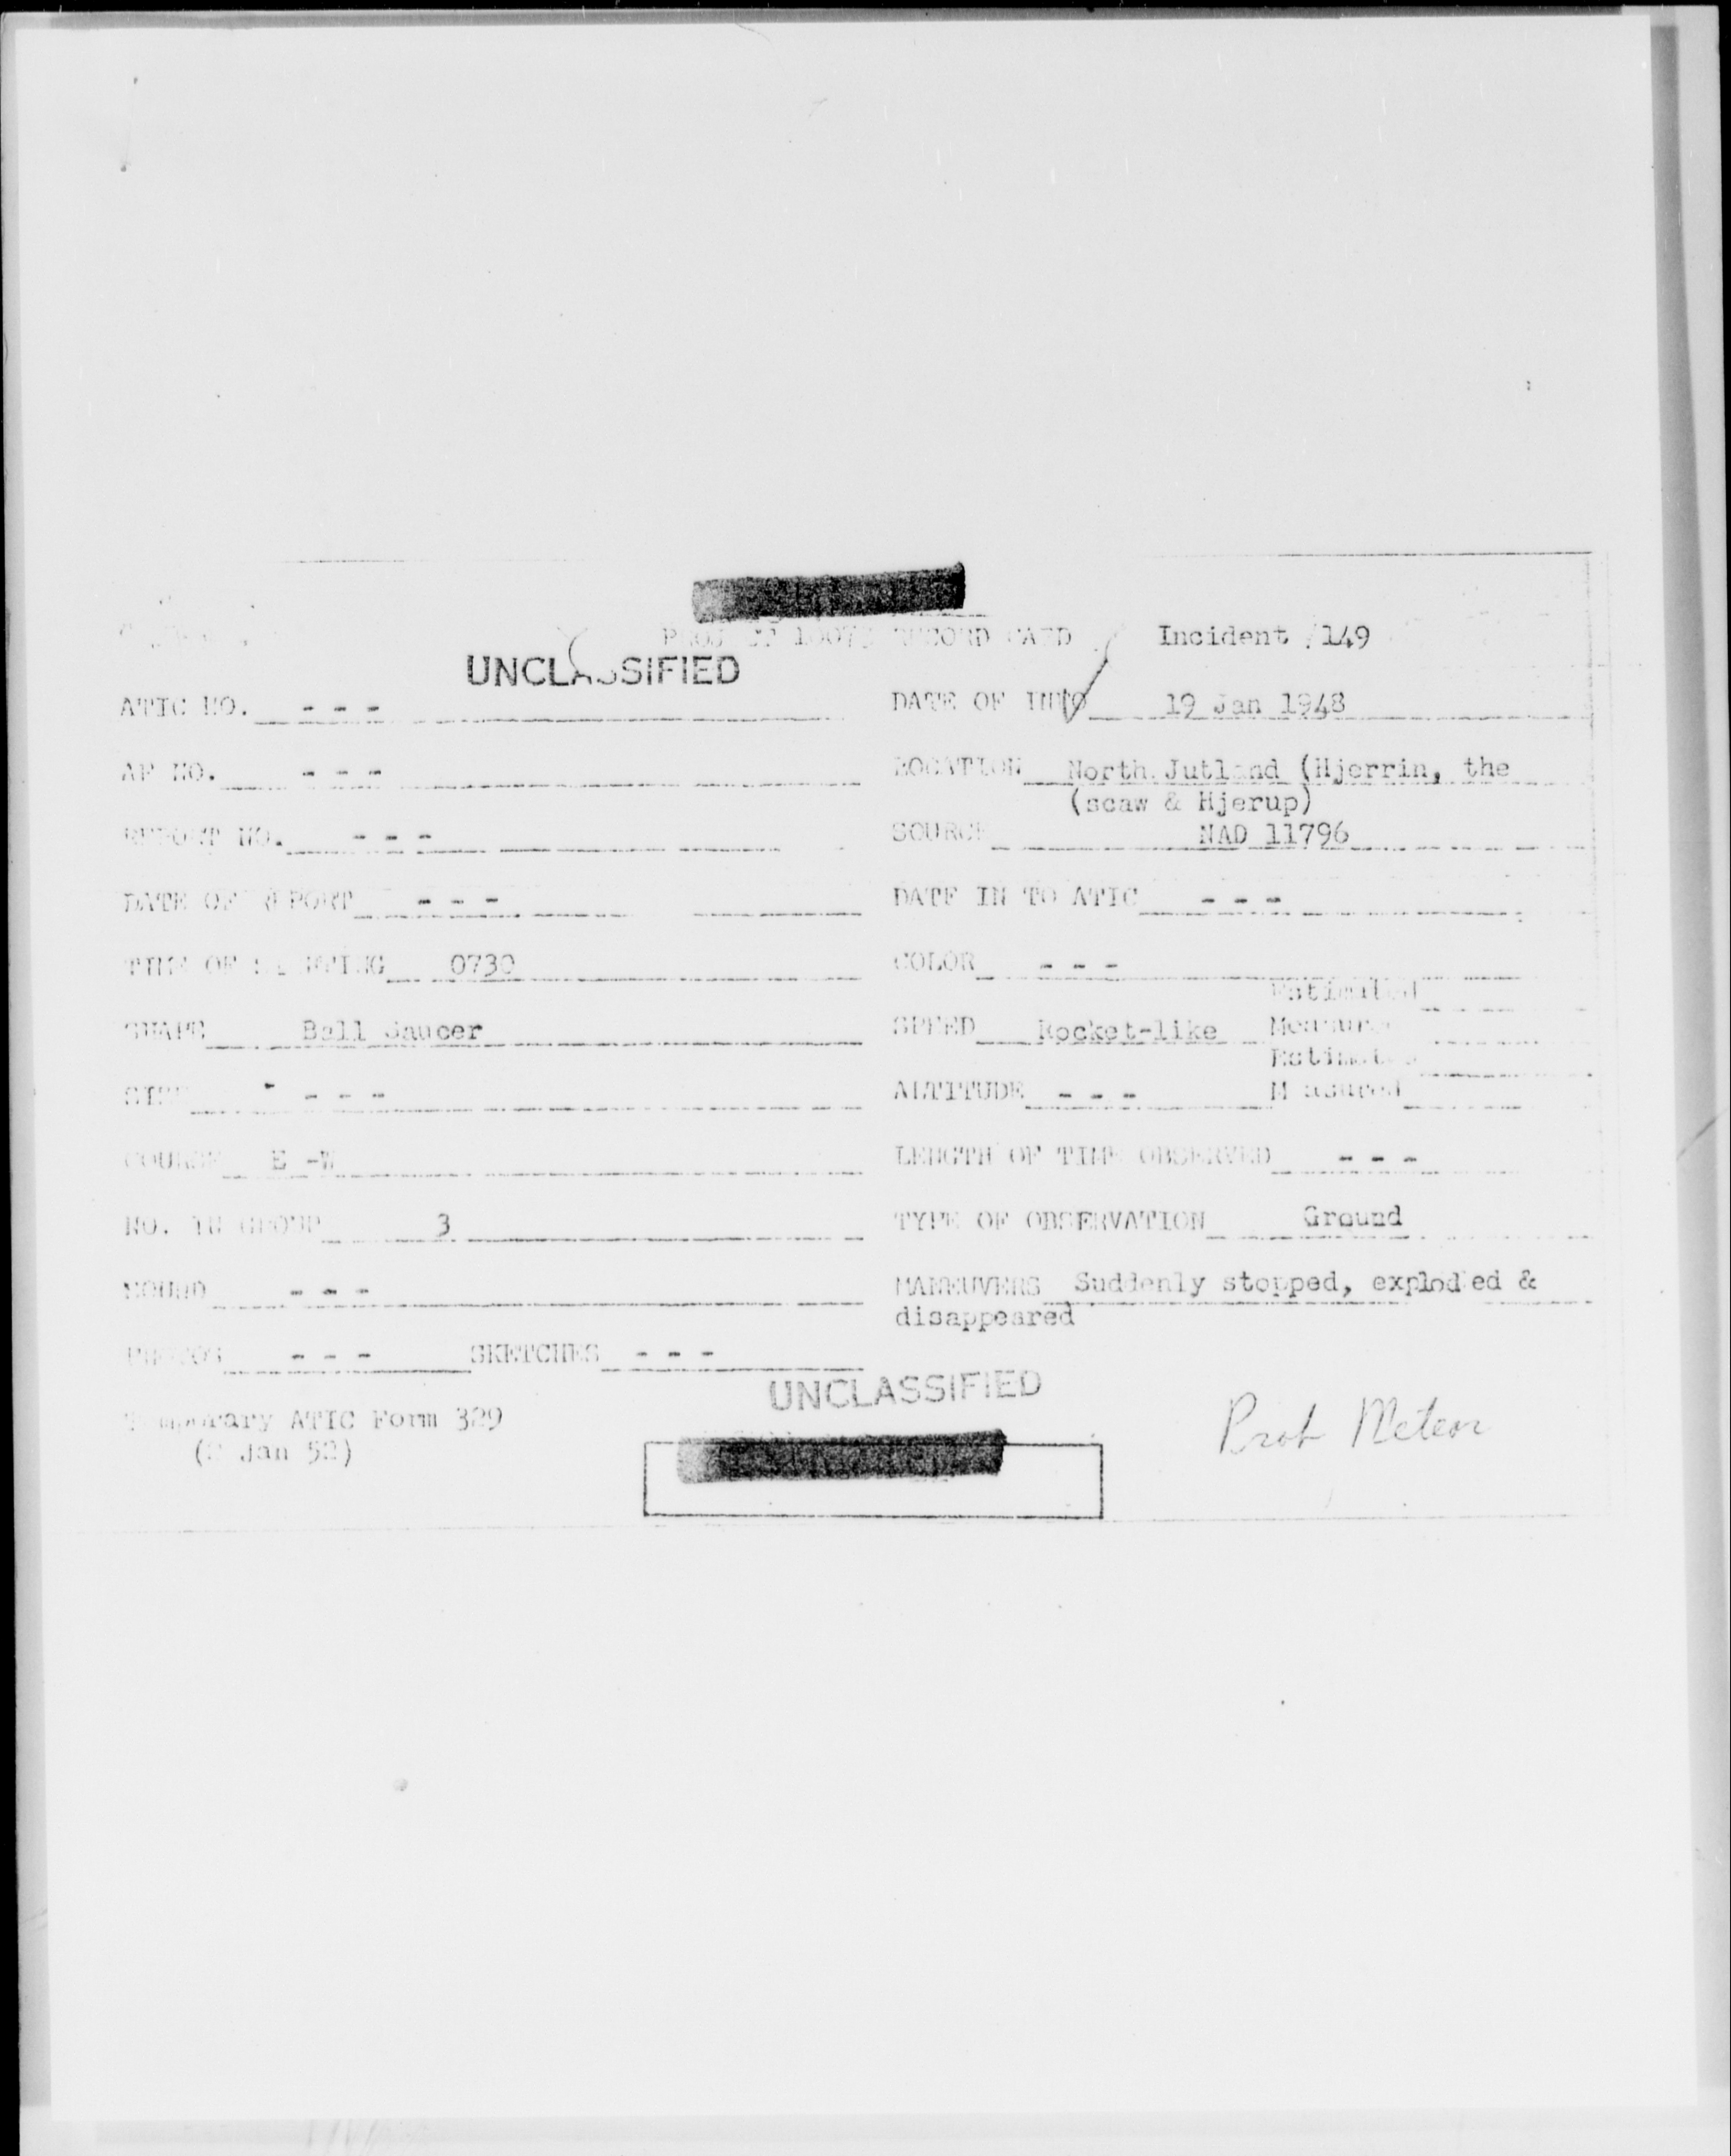 RECORD CARD Incident 149
UNCLASSIFIED
ATIC NO. - - - DATE OF INFO 19 Jan 1948
AF NO. - - - LOCATION North Jutland (Hjerrin, the
(scaw & Hjerup)
REPORT NO. - - - SOURCE NAD 11796
DATE OF REPORT - - - DATE IN TO ATIC - - -
TIME OF SIGHTING 0730 COLOR - - -
Estimated
SHAPE Ball Saucer SPEED Rocket-like Measured
Estimated
SIZE - - - ALTITUDE - - - Measured
COURSE E -W LENGTH OF TIME OBSERVED - - -
NO. IN GROUP 3 TYPE OF OBSERVATION Ground
SOUND - - - MANEUVERS Suddenly stopped, exploded &
disappeared
PHOTOS - - - SKETCHES - - -
UNCLASSIFIED
Temporary ATIC Form 329 Prob Meteor
Jan 52)